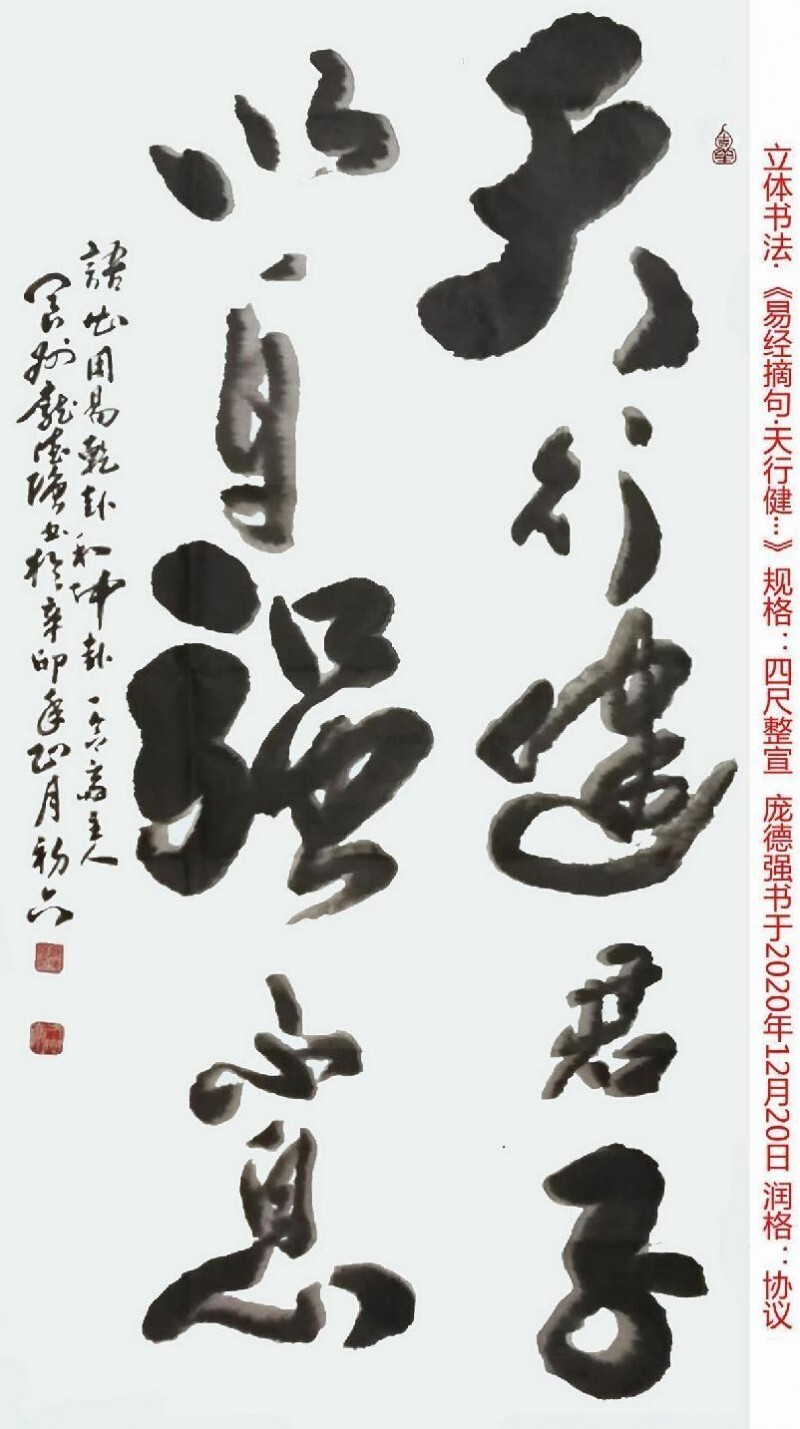 立体书法·《易经摘句·天行健…》 规格：四尺整宣 庞德强书于2020年12月20日 润格：协议
天行健君子
以自强不息
語出周易乾卦和坤卦 主人
州龐德強书於辛卯年正月初六